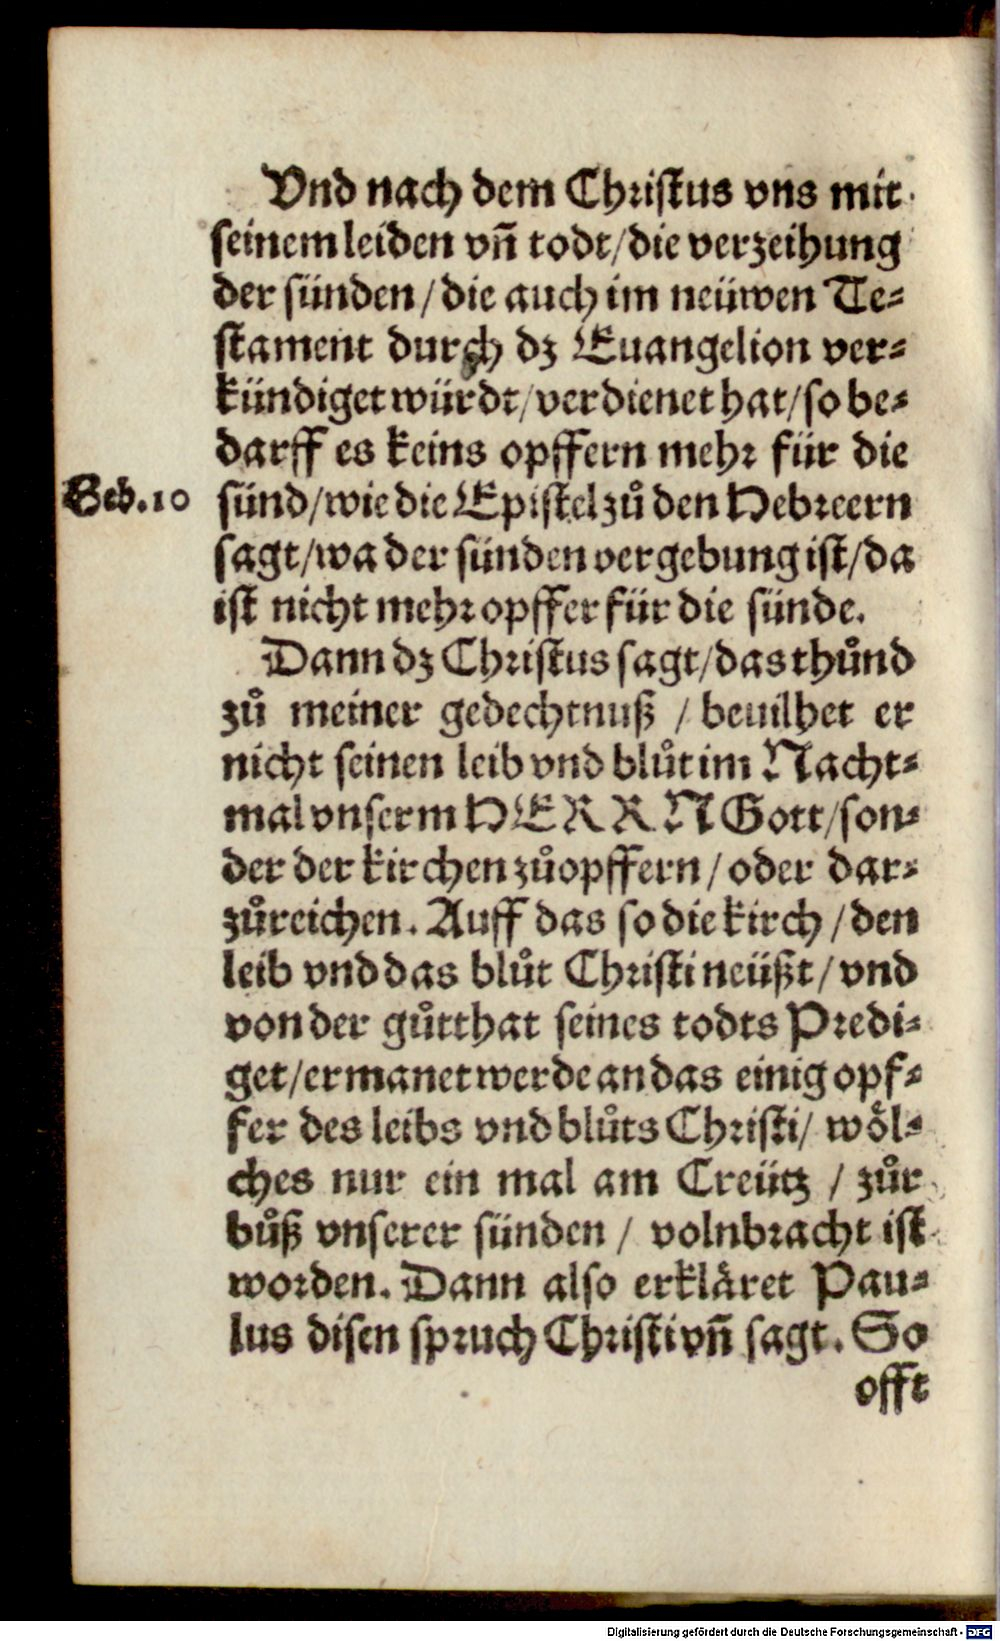 Vnd nach dem Christus vns mit
seinem leiden vñ todt/die verzeihung
der sünden/die auch im neüwen Te-
stament durch dz Euangelion ver-
kündiget würdt/verdienet hat/so be-
darff es keins opffern mehr für die
Heb.10 sünd/wie die Epistel zů den Hebreern
sagt/wa der sünden vergebung ist/da
ist nicht mehr opffer für die sünde.
Dann dz Christus sagt/das thůnd
zů meiner gedechtnuß / beuilhet er
nicht seinen leib vnd blůt im Nacht-
mal vnserm HERRN Gott/son-
der der kirchen zůopffern/oder dar-
zůreichen. Auff das so die kirch/den
leib vnd das blůt Christi neüßt/vnd
von der gůtthat seines todts Predi-
get/ermanet werde an das einig opf-
fer des leibs vnd blůts Christi/ wöl-
ches nur ein mal am Creütz / zůr
bůß vnserer sünden / volnbracht ist
worden. Dann also erkläret Pau-
lus disen spruch Christi vñ sagt. So
offt
Digitalisierung gefördert durch die Deutsche Forschungsgemeinschaft - DFG